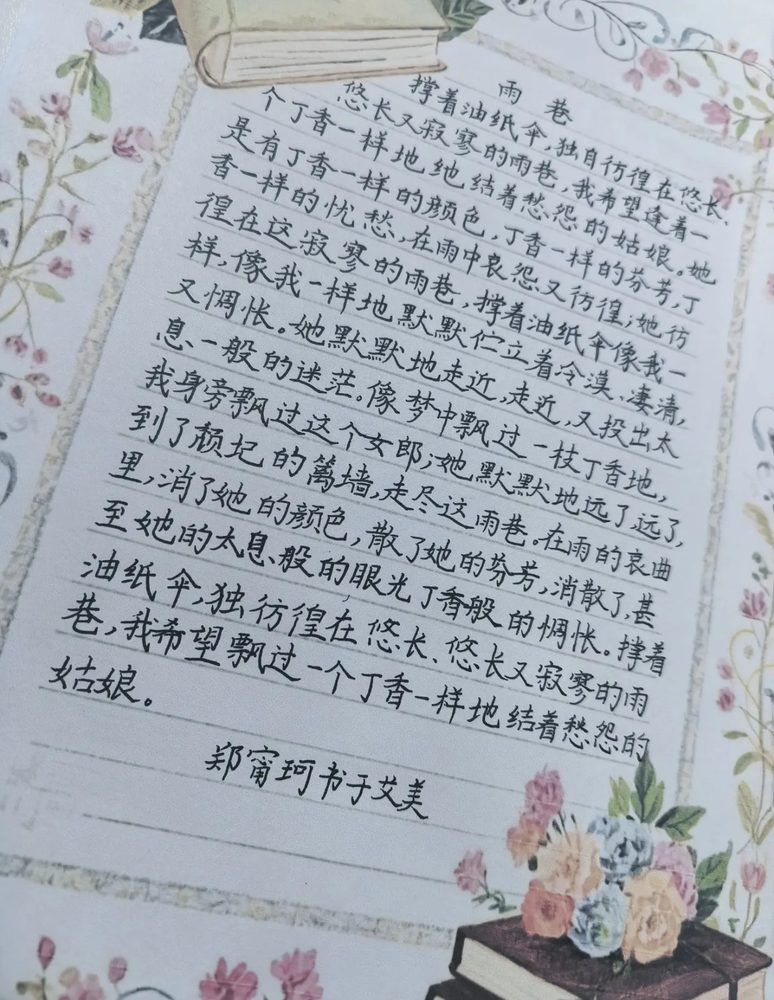 雨巷
撑着油纸伞,独自彷徨在悠长、
悠长又寂寥的雨巷,我希望逢着一
个丁香一样地结着愁怨的姑娘。她
是有丁香一样的颜色,丁香一样的芬芳,丁
香一样的忧愁,在雨中哀怨又彷徨;她彷
徨在这寂寥的雨巷,撑着油纸伞像我一
样,像我一样地默默伫立着冷漠、凄清,
又惆怅。她默默地走近,走近,又投出太
息一般的迷茫。像梦中飘过一枝丁香地,
我身旁飘过这个女郎;她默默地远了远了,
到了颓圮的篱墙,走尽这雨巷。在雨的哀曲
里,消了她的颜色,散了她的芬芳,消散了,甚
至她的太息般的眼光丁香般的惆怅。撑着
油纸伞,独彷徨在悠长、悠长又寂寥的雨
巷,我希望飘过一个丁香一样地结着愁怨的
姑娘。
郑甯珂书于艾美